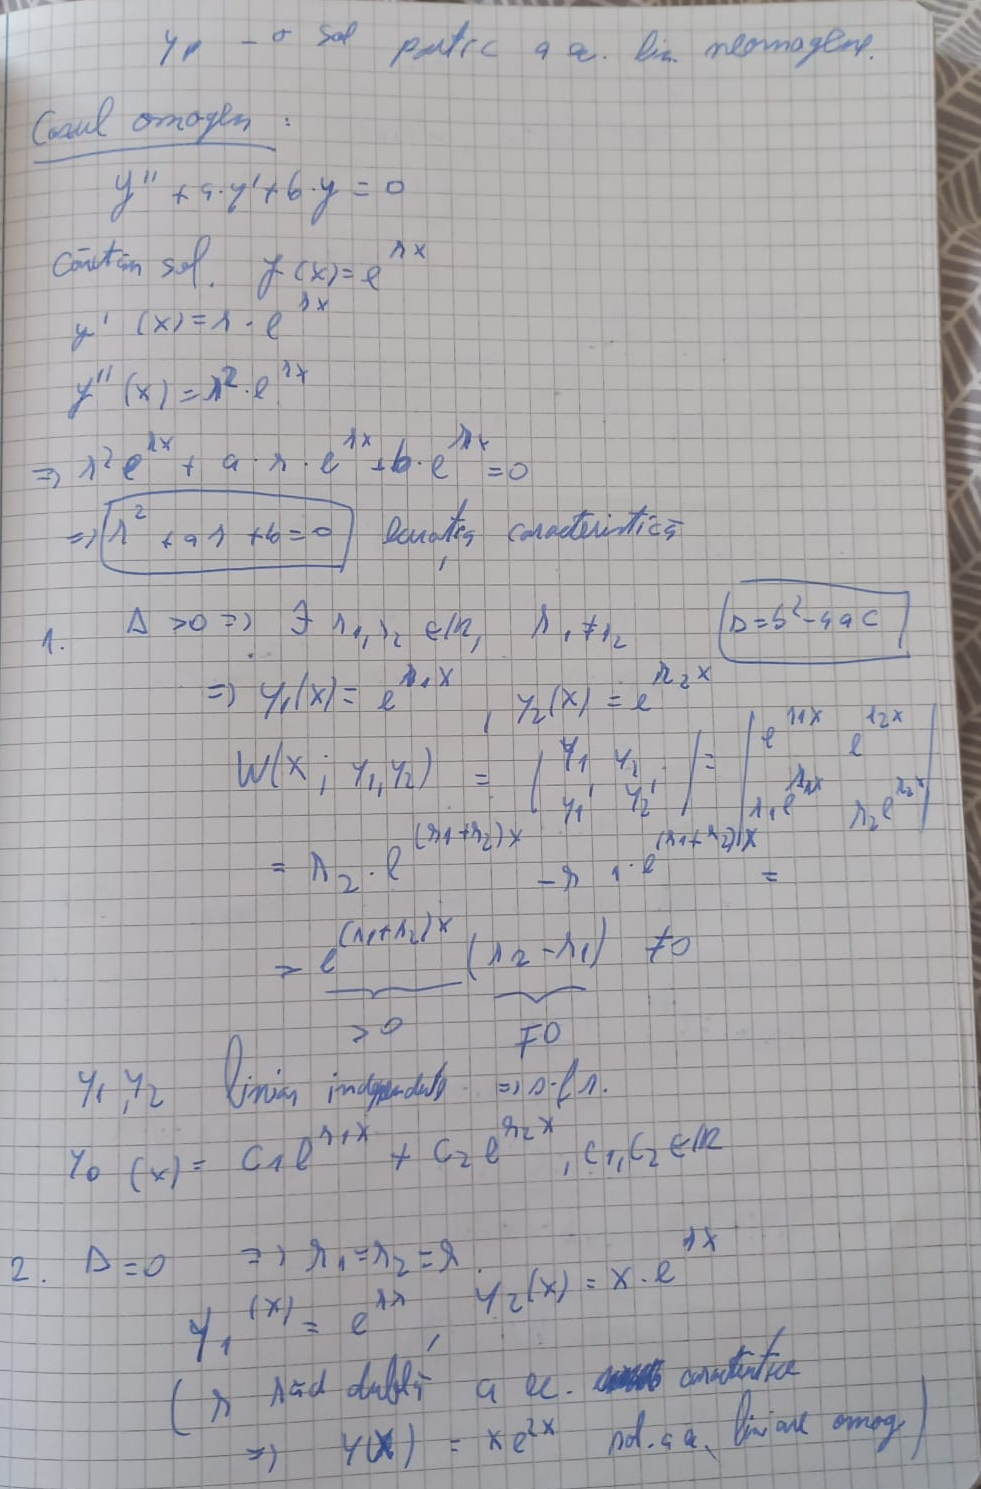 yp – o sol partic a ec. lin. neomogene.
Cazul omogen :
y'' + a·y' + b·y = 0
Căutăm sol. y(x) = e^{rx}
y'(x) = r·e^{rx}
y''(x) = r²·e^{rx}
=> r²e^{rx} + a·r·e^{rx} + b·e^{rx} = 0
=> r² + ar + b = 0 ecuația caracteristică
1. Δ > 0 => ∃ r₁, r₂ ∈ ℝ, r₁ ≠ r₂ Δ = b² - 4ac
=> y₁(x) = e^{r₁x}, y₂(x) = e^{r₂x}
W(x; y₁, y₂) = | y₁ y₂ ; y₁' y₂' | = | e^{r₁x} e^{r₂x} ; r₁e^{r₁x} r₂e^{r₂x} |
= r₂·e^{(r₁+r₂)x} - r₁·e^{(r₁+r₂)x} =
= e^{(r₁+r₂)x} (r₂ - r₁) ≠ 0
> 0 ≠ 0
y₁, y₂ liniar independente => s.f.s.
y₀(x) = C₁e^{r₁x} + C₂e^{r₂x}, C₁, C₂ ∈ ℝ
2. Δ = 0 => r₁ = r₂ = r.
y₁(x) = e^{rx}, y₂(x) = x·e^{rx}
(r răd dublă a ec. caracteristice
=> y(x) = xe^{2x} sol. a ec. liniare omog)